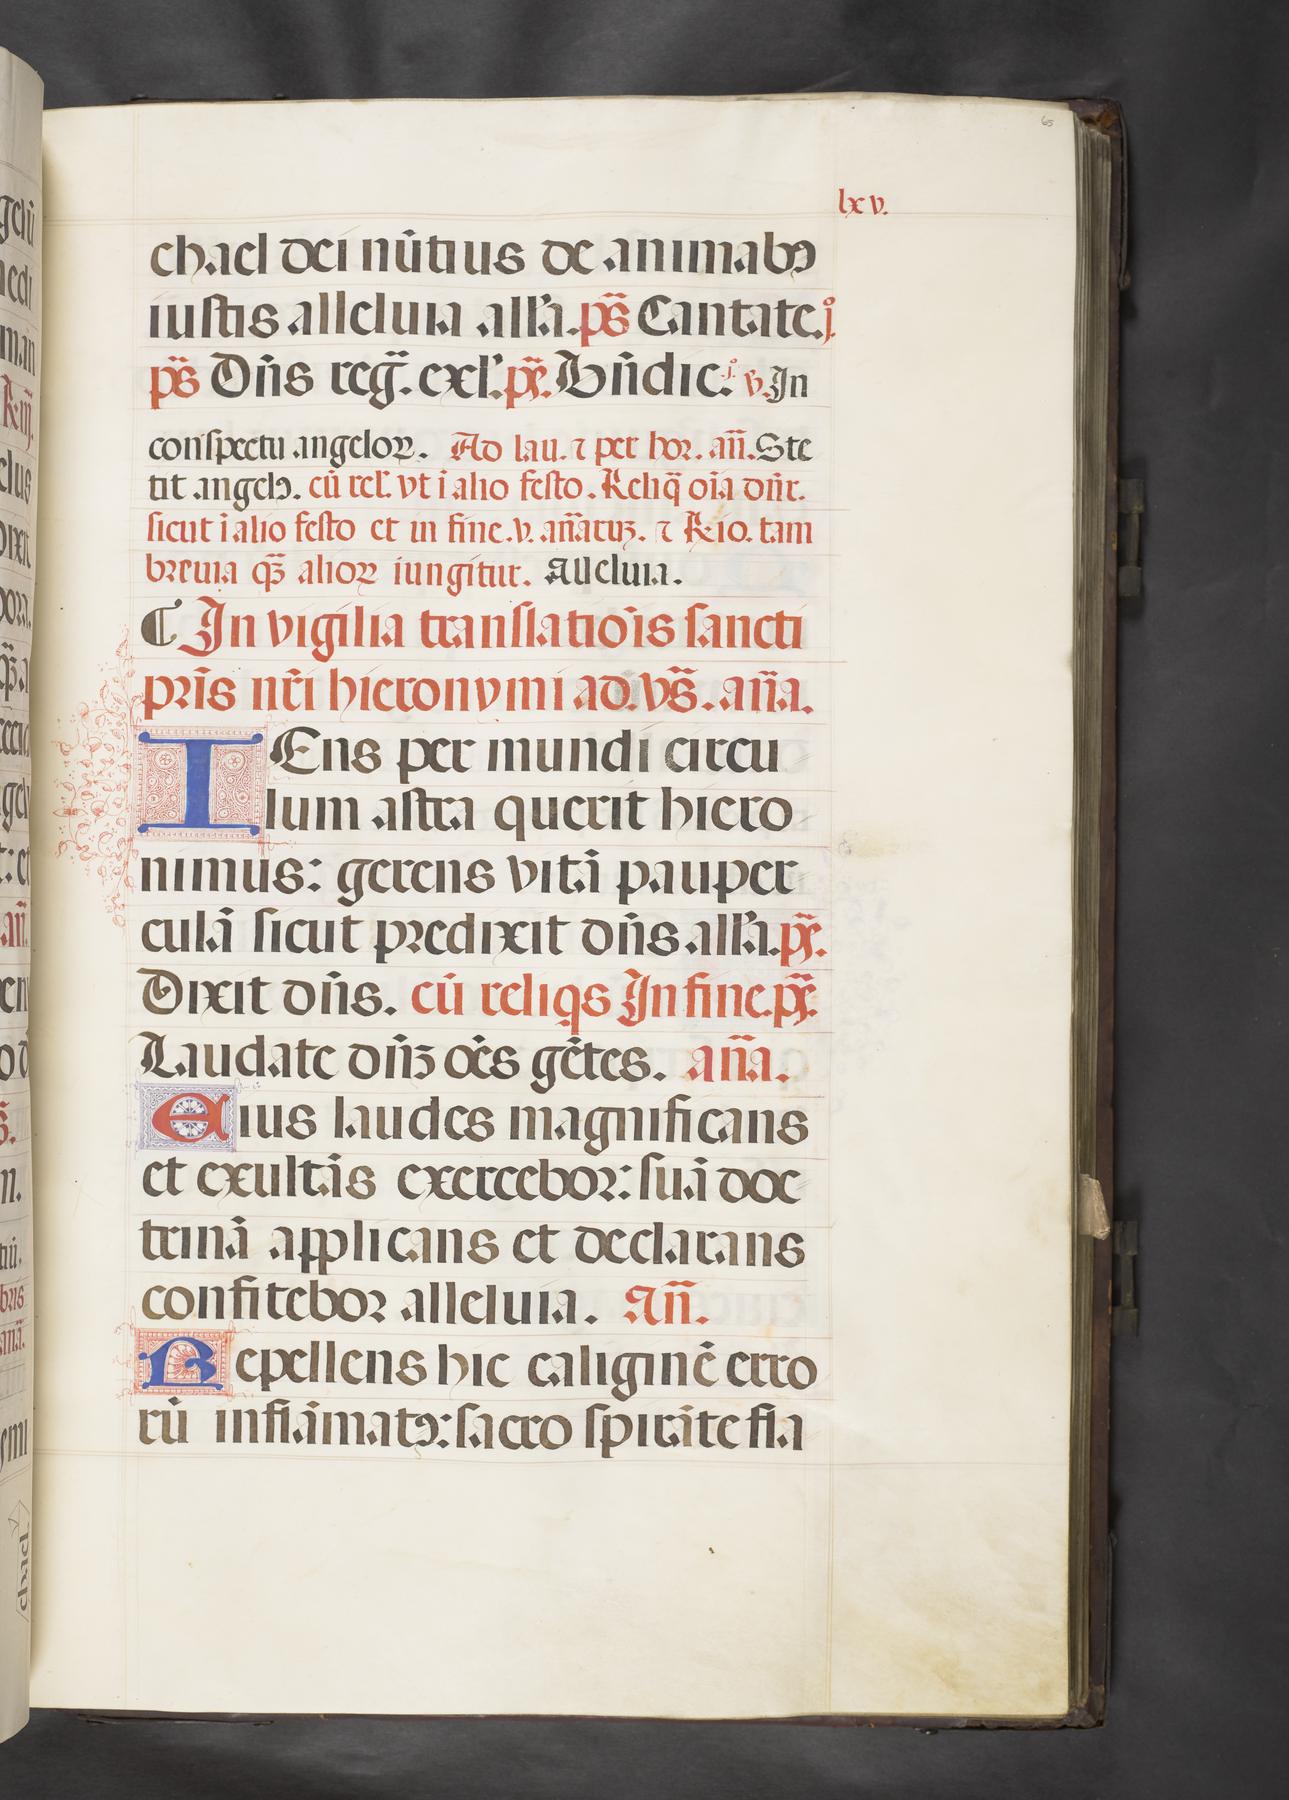 65
lxv.
chael dei nũtius de animabꝰ
iustis alleluia all'a. ps̃ Cantate. j°
ps̃ Dñs reg̃. exl'. px̃. Bñdic. j° v. In
conspectu angeloꝝ. Ad lau. ⁊ per hor. añ. Ste
tit angelꝰ. cũ rel'. vt ĩ alio festo. Reliq̃ oĩa dñr.
sicut ĩ alio festo et in fine. v. añaruꝫ. ⁊ R̃io. tam
breuia qs̃ alioꝝ iungitur. Alleluia.
¶ In vigilia translatiõis sancti
pr̃is nr̃i hieronymi ad. vs̃. aña.
IEns per mundi circu
lum astra querit hiero
nimus: gerens vitã pauper
culã sicut predixit dñs. all'a. px̃.
Dixit dñs. cũ reliqs In fine. px̃.
Laudate dñꝫ oẽs gẽtes. aña.
Eius laudes magnificans
et exultãs exercebor: suã doc
trinã applicans et declarans
confitebor alleluia. Añ.
Repellens hic caliginẽ erro
rũ inflãmatꝰ: sacro spirãte fla
chael.